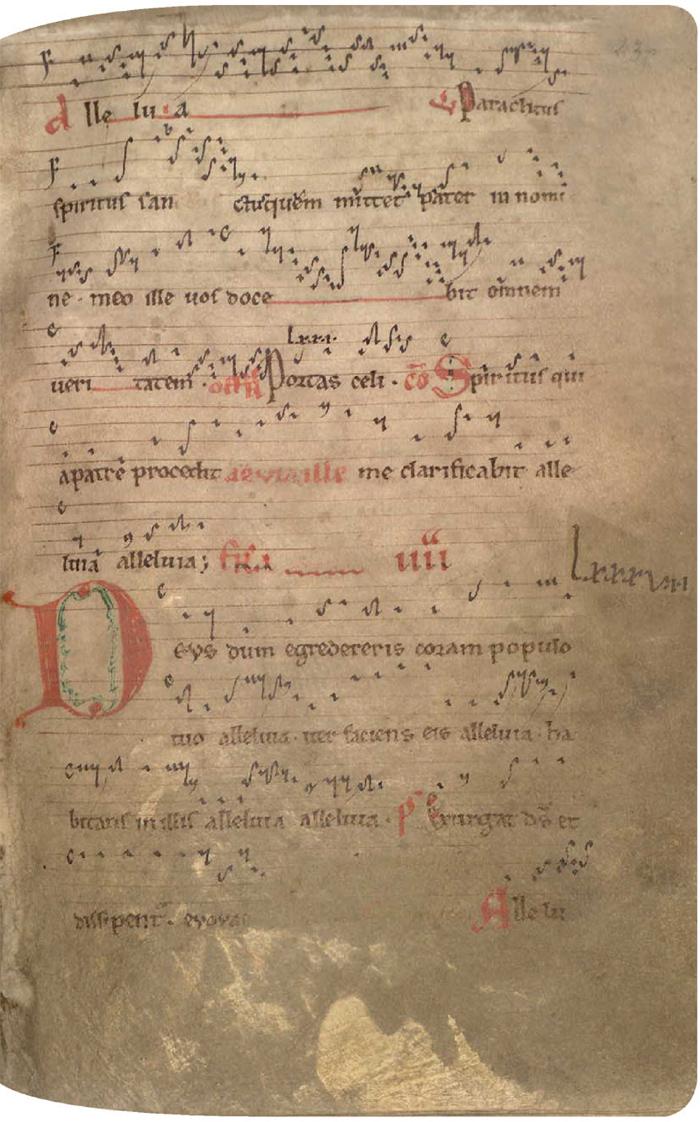 Alle lu ia Paraclitus
spiritus san ctus quem mittet pater in nomi
ne meo ille vos doce bit omnem
veri tatem. Portas celi. co Spiritus qui
a patre procedit ille me clarificabit alle
luia alleluia; iiii
Deus dum egredereris coram populo
tuo alleluia. iter faciens eis alleluia. ha
bitans in illis alleluia alleluia. ps Exurgat ds et
dissipent. evovae Alle lu